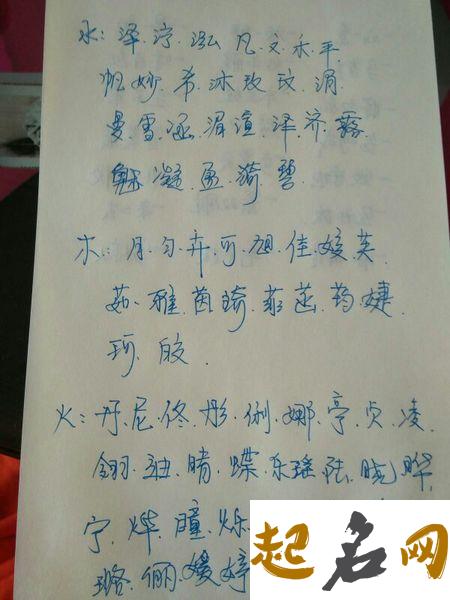 水：泽.泞.泓.凡.文.禾.平.
帆妙.希.沐玫.玟.湄
曼雪.涵.湄渲.泽.济.露.
魅.凝.盈.漪.碧.
木：月.匀.卉.可.旭.佳.媛.芙
茹.雅.茵.琦.菲.茵.药.婕.
珂.皎.
火：丹.尼.佟.彤.俐.娜.亭.贞.凌.
翎.迪.晴.蝶.东.瑶.陆.晓.晔.
宁.烨.瞳.烁
璐.俪.嫒.婷
起名网